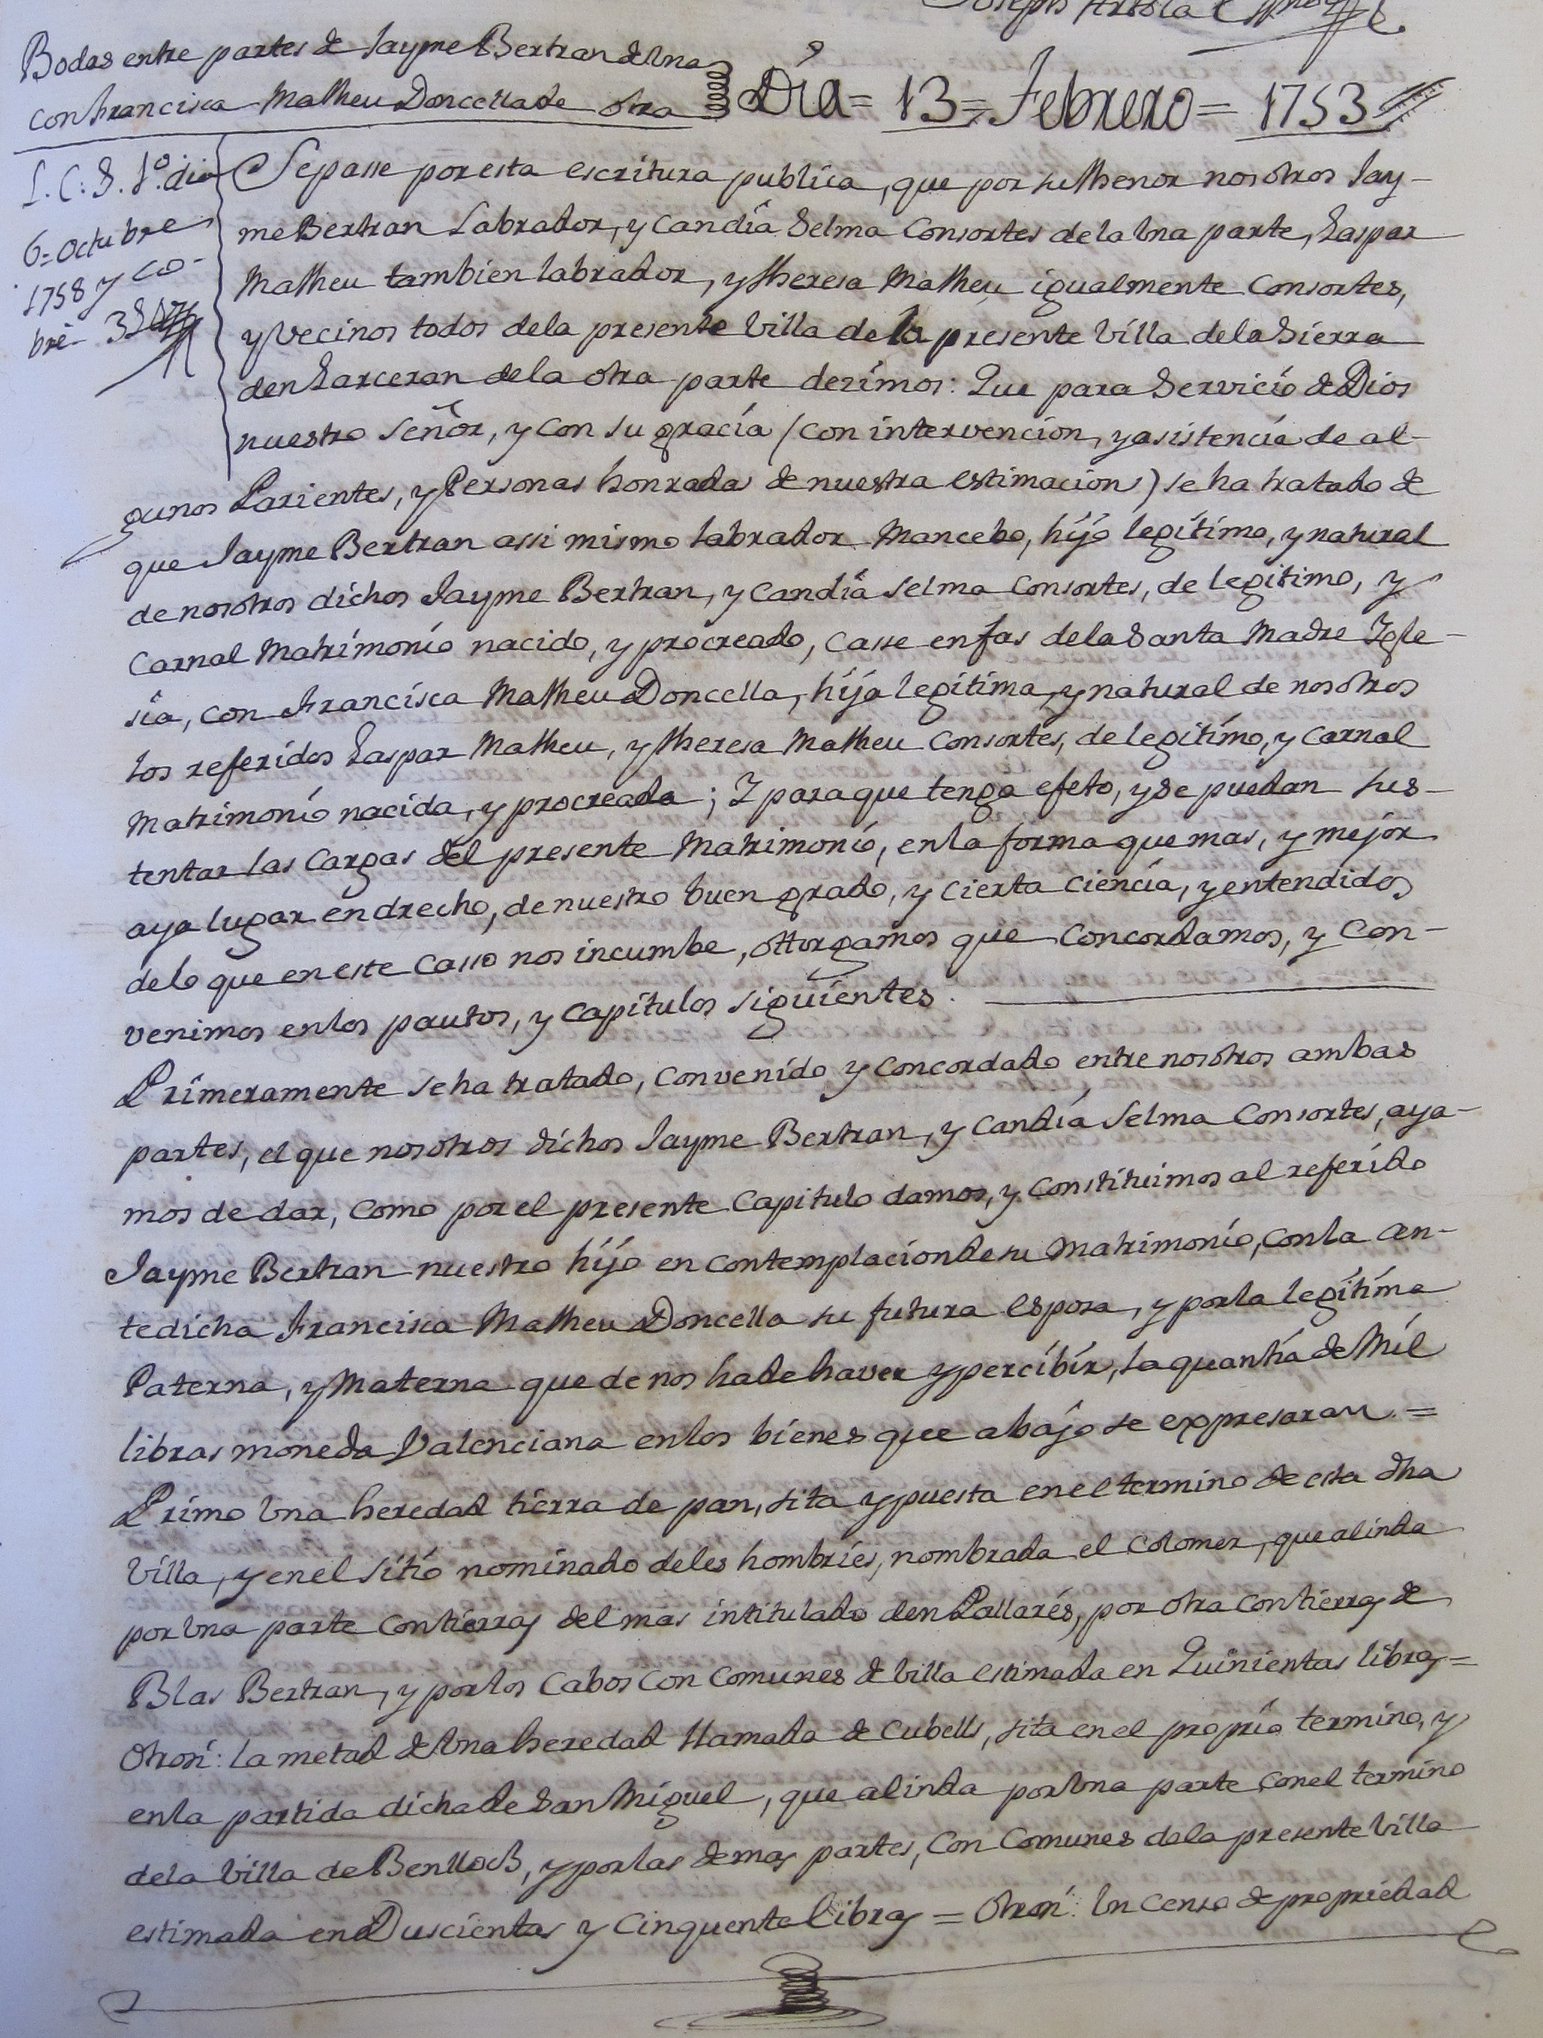 Joseph Artola
Bodas entre partes de Jayme Bertran de Una
con Francisca Matheu Doncella de otra
Dia = 13 = Febrero = 1753
S. C. S. 1º. dia
6= Octubre
1758 y co-
bré
Sepasse por esta escritura publica, que por su thenor nosotros Jay-
me Bertran Labrador, y Candia Selma Consortes de la Una parte, Gaspar
Matheu tambien labrador, y theresa Matheu igualmente Consortes,
y Vecinos todos dela presente Villa de la presente Villa dela Sierra
den Garceran dela otra parte dezimos: Que para Servicio de Dios
nuestro Señor, y con su gracia (con intervencion, y asistencia de al-
gunos Parientes, y Personas honradas de nuestra estimacion) se ha tratado de
que Jayme Bertran assi mismo labrador Mancebo, hijo legitimo, y natural
de nosotros dichos Jayme Bertran, y Candia Selma Consortes, de legitimo, y
Carnal Matrimonio nacido, y procreado, Casse en fas dela Santa Madre Igle-
sia, con Francisca Matheu Doncella, hija legitima, y natural de nosotros
los referidos Gaspar Matheu, y theresa Matheu Consortes, de legitimo, y Carnal
Matrimonio nacida, y procreada; Y para que tenga efeto, y se puedan sus-
tentar las Cargas del presente Matrimonio, en la forma que mas, y mejor
aya lugar en drecho, de nuestro buen grado, y Cierta Ciencia, y entendidos
delo que en este Casso nos incumbe, ottorgamos que Concordamos, y Con-
venimos en los pautos, y Capitulos siguientes.
Primeramente se ha tratado, Convenido y Concordado entre nosotros ambas
partes, el que nosotros dichos Jayme Bertran, y Candia Selma Consortes, aya-
mos de dar, Como por el presente Capitulo damos, y Constituimos al referido
Jayme Bertran nuestro hijo en Contemplacion de su Matrimonio, con la an-
tedicha Francisca Matheu Doncella su futura Esposa, y por la legitima
Paterna, y Materna que de nos ha de haver y percibir, la quantia de Mil
libras moneda Valenciana en los bienes que abajo se expresaran. =
Primo Una heredad tierra de pan, sita y puesta en el termino de esta dha
Villa, y en el sitio nominado deles hombries, nombrada el Colomer, que alinda
por Una parte Con tierras del mas intitulado den Pallarés, por otra Con tierras de
Blas Bertran, y por los Cabos con Comunes de Villa estimada en Quinientas libras =
Otrosi: la metad de Una heredad llamada de Cubells, sita en el proprio termino, y
en la partida dicha de San Miguel, que alinda por Una parte con el termino
dela Villa de Benlloch, y por las demas partes, Con Comunes dela presente Villa
estimada en Duscientas y Cinquenta libras = Otrosi: Un Censo de propriedad